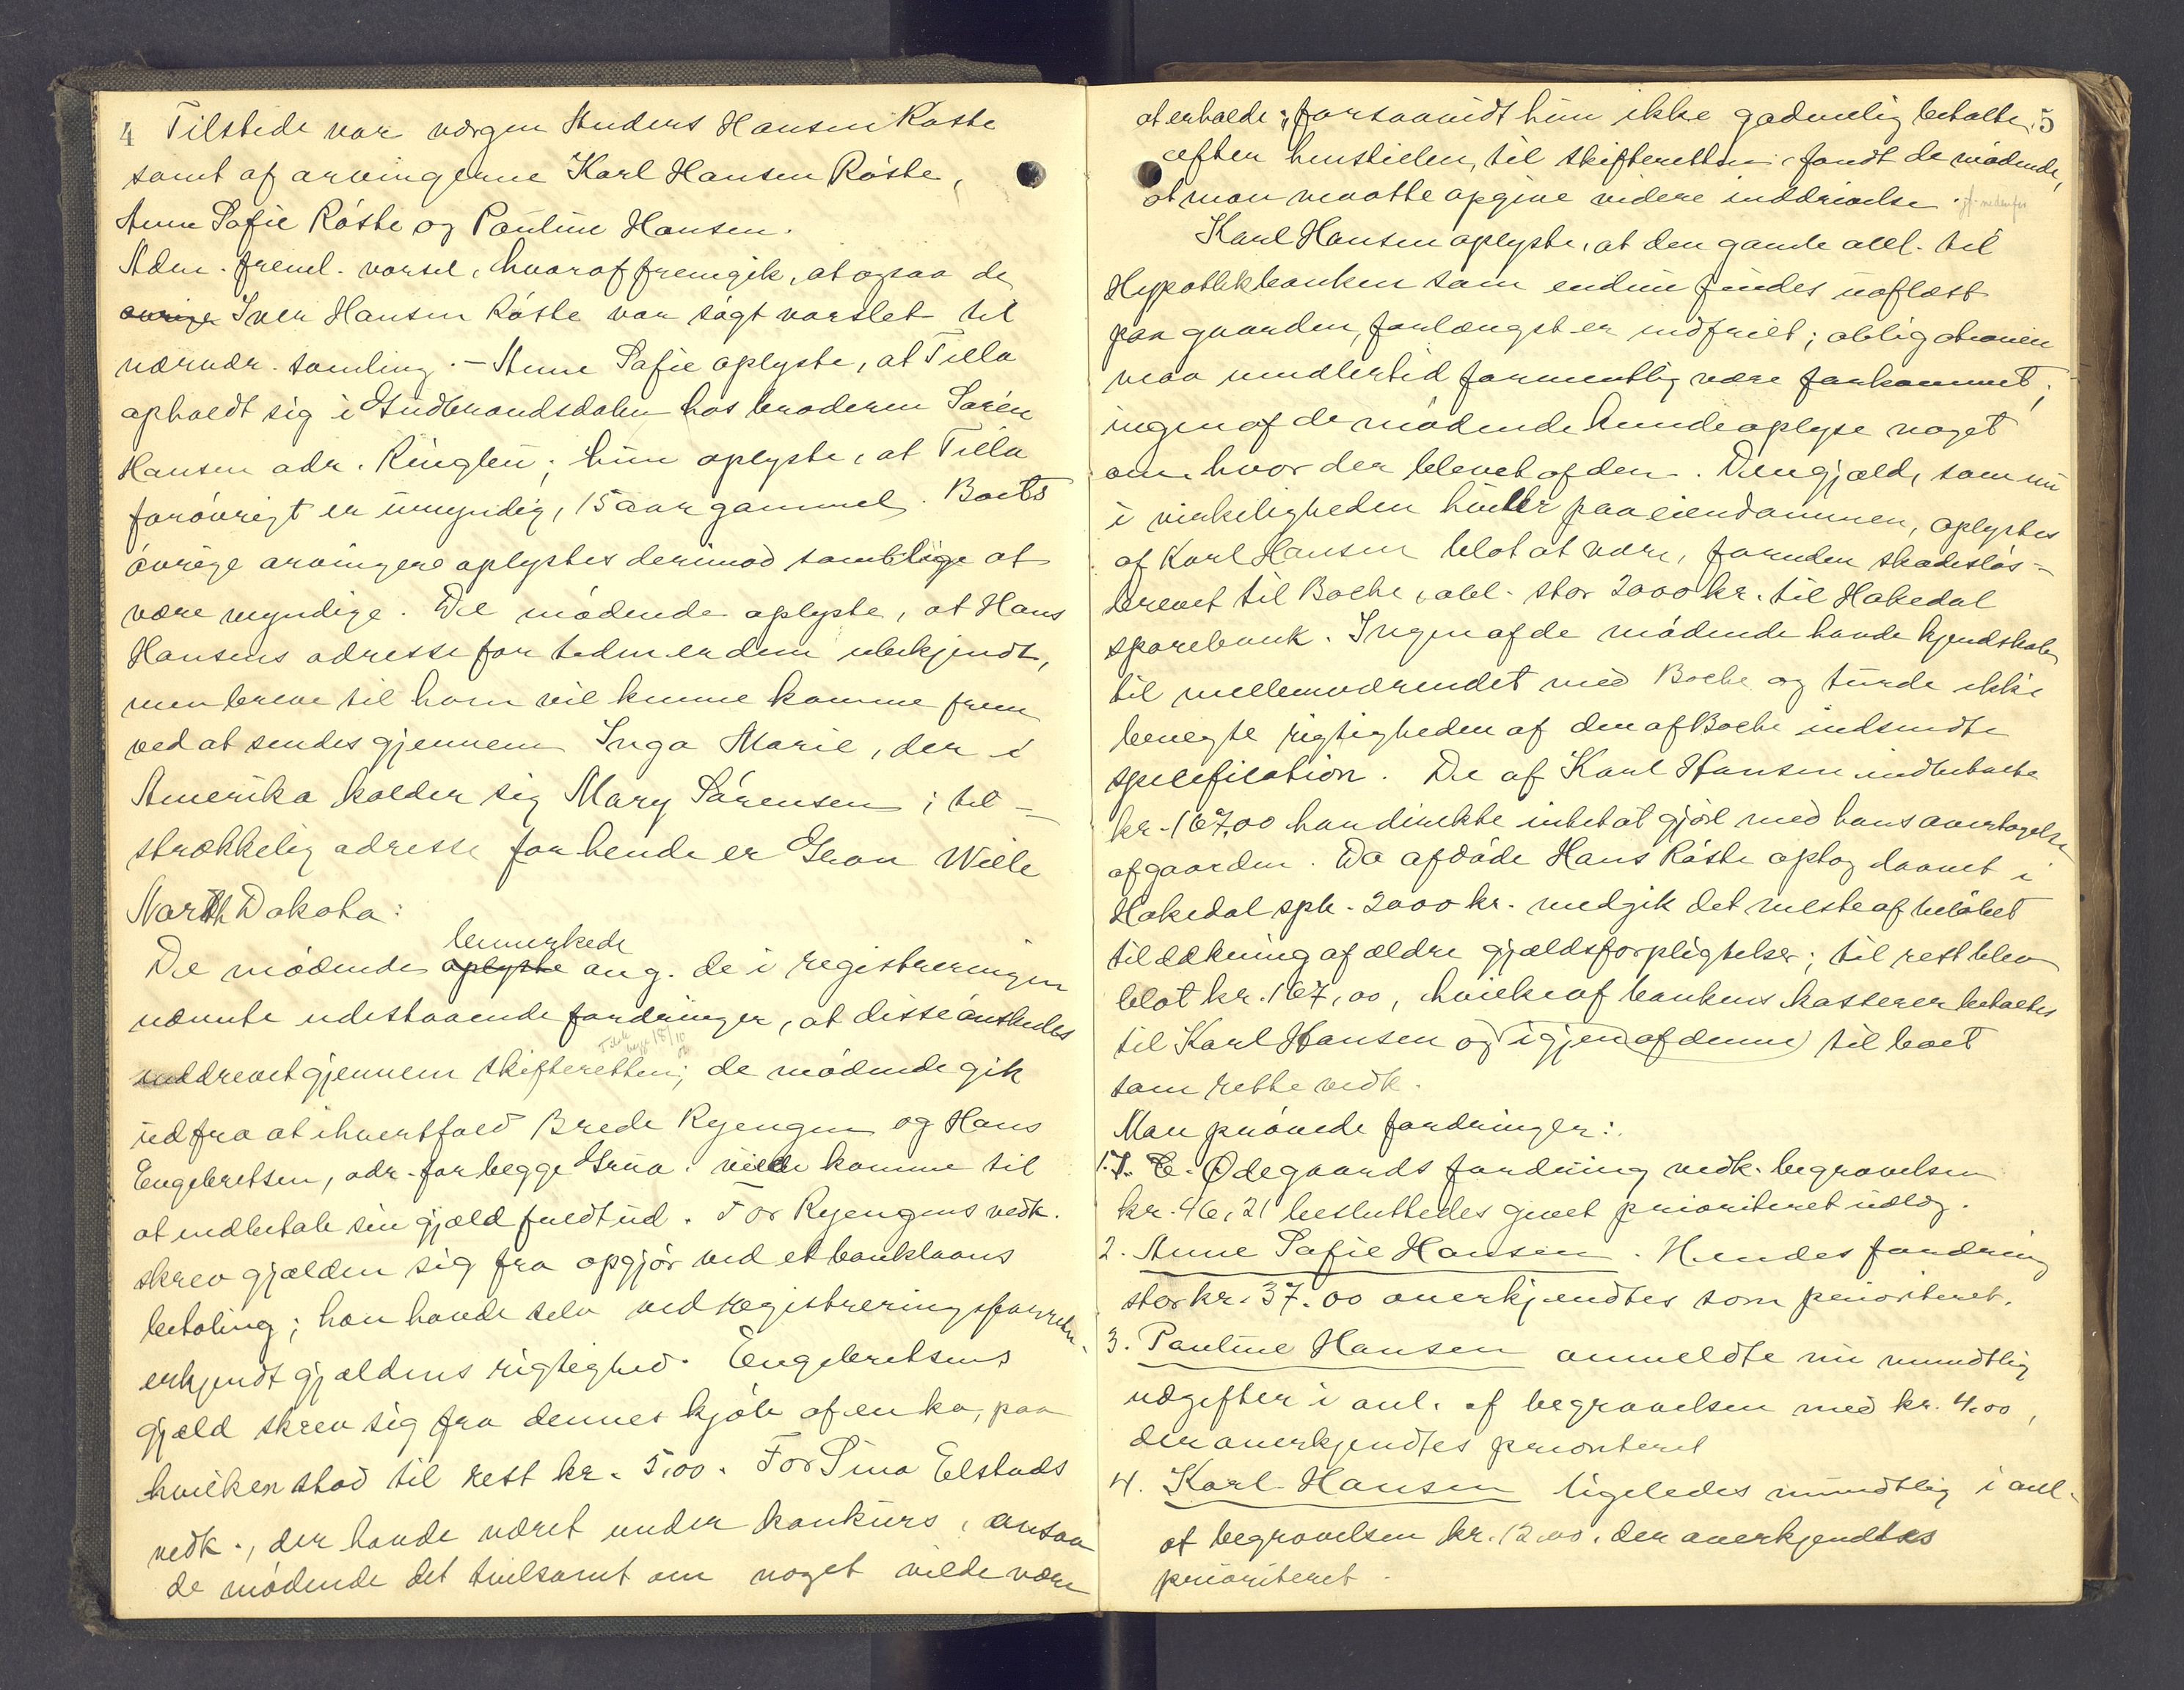 4 Tilstede var værgen Anders Hansen Røste
samt af arvingerne Karl Hansen Røste,
Anne Sofie Røste og Pauline Hansen.
Adm. freml. varsel, hvoraf fremgik, at ogsaa de
øvrige Iver Hansen Røste var søgt varslet til
nærvær. samling. - Anne Sofie oplyste, at Tilla
opholdt sig i Gudbrandsdalen hos broderen Søren
Hansen adr. Ringlen; hun oplyste, at Tilla
forøvrigt er umyndig, 15 aar gammel. Boets
øvrige arvingere oplystes derimod samtlige at
være myndige. De mødende oplyste, at Hans
Hansens adresse for tiden er dem ubekjendt,
men breve til ham vil kunne komme frem
ved at sendes gjennem Inga Marie, der i
Amerika kalder sig Mary Sørensen; til-
strækkelig adresse for hende er Gran Wille
North Dakota:
De mødende oplyste bemerkede ang. de i registreringen
nævnte udestaaende fordringer, at disse ønskedes
inddrevet gjennem skifteretten; de mødende gik
ud fra at ihvertfald Brede Ryengen og Hans
Engebretsen, adr. for begge Grua. vilde komme til
at indbetale sin gjæld fuldt ud. For Ryengens vedk.
skrev gjælden sig fra opgjør ved et banklaans
betaling; han havde selv ved registreringsforretn.
erkjendt gjældens rigtighed. Engebretsens
gjæld skrev sig fra dennes kjøb af en ko, paa
hvilken stod til rest kr. 5,00. For Sina Elstads
vedk., der havde været under konkurs, ansaa
de mødende det tvilsomt om noget vilde være
at erholde; forsaavidt hun ikke godvillig betalte 5
efter henstillen til skifteretten, fandt de mødende,
at man maatte opgive videre inddrivelse. jf. nedenfor
Karl Hansen oplyste, at den gamle obl. til
Hypothekbanken som endnu findes uaflæst
paa gaarden, forlængst er indfriet; obligationen
maa imidlertid formentlig være forkommet;
ingen af de mødende kunde oplyse noget
om hvor der blevet af den. Den gjæld, som nu
i virkeligheden hviler paa eiendommen, oplystes
af Karl Hansen blot at være, foruden skadesløs-
brevet til Boehe, obl. stor 2000 kr. til Hakedal
sparebank. Ingen af de mødende havde kjendskab
til mellemværendet med Boehe og turde ikke
benegte rigtigheden af den af Boehe indsendte
specification. De af Karl Hansen indbetalte
kr. 167,00 havde intet at gjøre med hans overtagelse
af gaarden. Da afdøde Hans Røste optog laanet i
Hakedal spb. 2000 kr. medgik det meste af beløbet
til dækning af ældre gjældsforpligtelser; til rest blev
blot kr. 167,00, hvilke af bankens kasserer betaltes
til Karl Hansen og igjen af denne til boet
som rette vedk.
Man prøvede fordringer:
1. I. E. Ødegaards fordring vedk. begravelsen
kr. 46,21 besluttedes givet prioriteret udlæg.
2. Anne Sofie Hansen. Hendes fordring
stor kr. 37.00 anerkjendtes som prioriteret.
3. Pauline Hansen anmeldte nu mundtlig
udgifter i anl. af begravelsen med kr. 4.00,
der anerkjendtes prioriteret
4. Karl Hansen ligeledes mundtlig i anl.
af begravelsen kr. 12,00. der anerkjendtes
prioriteret.